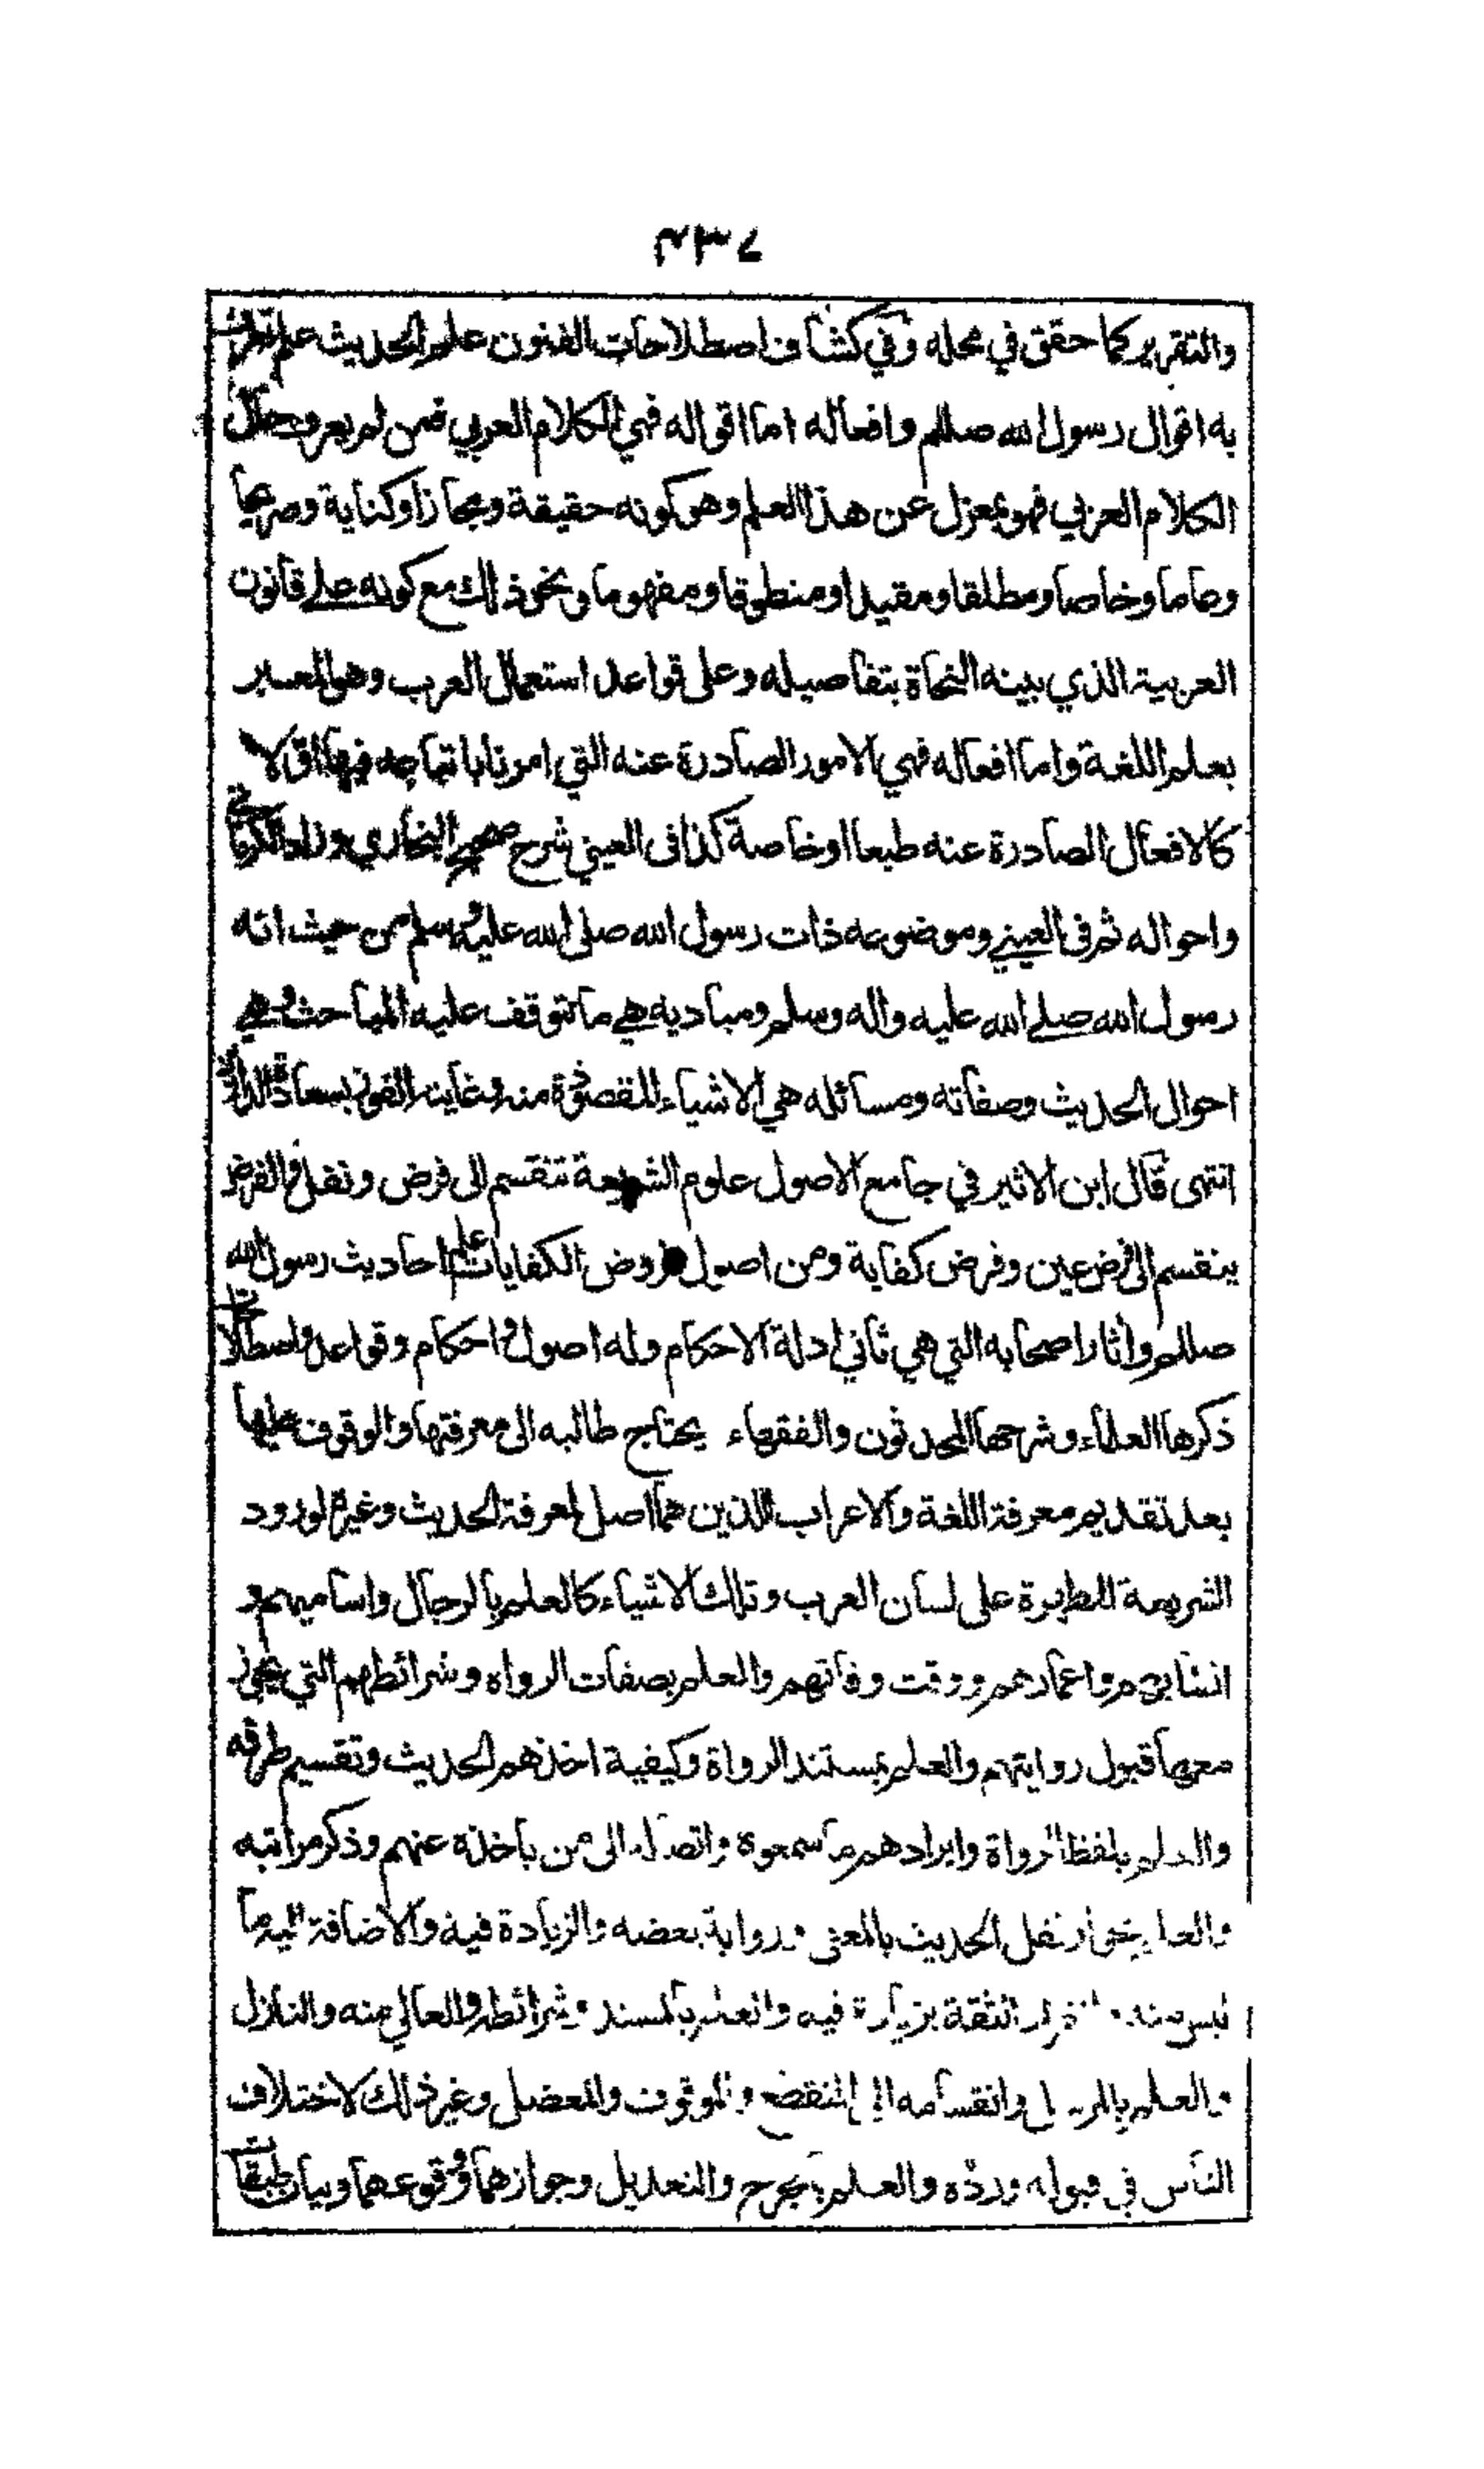 ٤٣٧
والتقرير كما حقق في محله وفي كشاف اصطلاحات الفنون علم الحديث علم تعرف
به اقوال رسول الله صللم وافعاله اما اقواله فهي الكلام العربي فمن لم يعرف حال
الكلام العربي فهو بمعزل عن هذا العلم وهو كونه حقيقة ومجازا وكناية وصريحا
وعاما وخاصا ومطلقا ومقيدا ومنطوقا ومفهوما ونحو ذلك مع كونه على قانون
العربية الذي بينه النحاة بتفاصيله وعلى قواعد استعمال العرب وهو المعبر
بعلم اللغة واما افعاله فهي الامور الصادرة عنه التي امرنا باتباعه فيها اولا
كالافعال الصادرة عنه طبعا او خاصة كذا في العيني شرح صحيح البخاري وزاد الكرماني
واحواله ثم في العيني وموضوعه ذات رسول الله صلى الله عليه وسلم من حيث انه
رسول الله صلى الله عليه واله وسلم ومباديه هي ما تتوقف عليه المباحث وهي
احوال الحديث وصفاته ومسائله هي الاشياء المقصودة منه وغايته الفوز بسعادة الدارين
انتهى قال ابن الاثير في جامع الاصول علوم الشريعة تنقسم الى فرض ونفل والفرض
ينقسم الى فرض عين وفرض كفاية ومن اصول فروض الكفايات علم احاديث رسول الله
صللم واثار اصحابه التي هي ثاني ادلة الاحكام وله اصول واحكام وقواعد واصطلاحات
ذكرها العلماء وشرحها المحدثون والفقهاء يحتاج طالبه الى معرفتها والوقوف عليها
بعد تقديم معرفة اللغة والاعراب اللذين هما اصل لمعرفة الحديث وغيره لورود
الشريعة المطهرة على لسان العرب وتلك الاشياء كالعلم بالرجال واساميهم و
انسابهم واعمارهم ووقت وفاتهم والعلم بصفات الرواه وشرائطهم التي يجوز
معها قبول روايتهم والعلم بمستند الرواة وكيفية اخذهم الحديث وتقسيم طرقه
والعلم بلفظ الرواة وايرادهم ما سمعوه واتصاله الى من ياخذه عنهم وذكر مراتبه
والعلم بجواز نقل الحديث بالمعنى ورواية بعضه والزيادة فيه والاضافة اليه ما
ليس منه وانفراد الثقة بزيادة فيه والعلم بالمسند وشرائطه والعالي منه والنازل
والعلم بالمرسل وانقسامه الى المنقطع والموقوف والمعضل وغير ذلك لاختلاف
الناس في قبوله ورده والعلم بالجرح والتعديل وجوازهما ووقوعهما وبيان طبقات